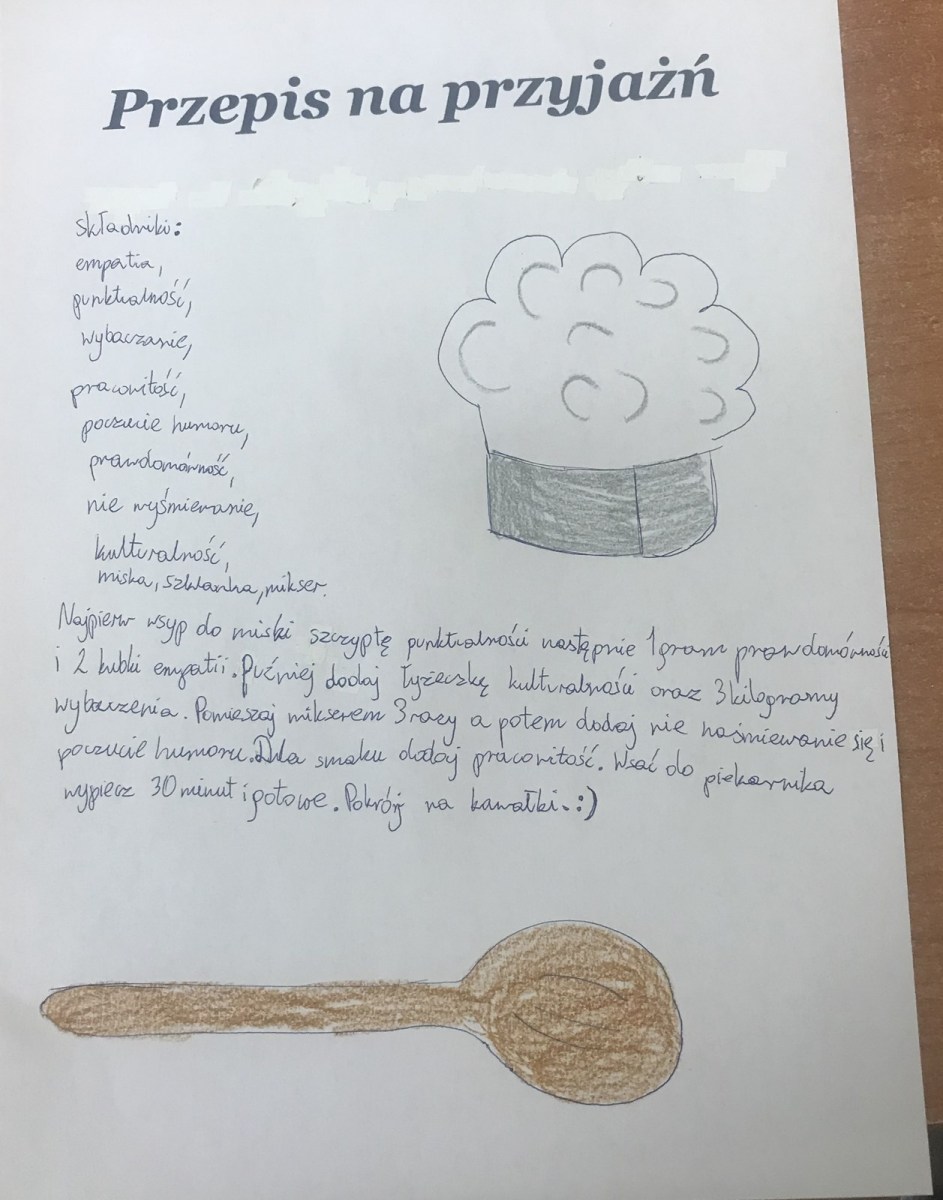 Przepis na przyjaźń
składniki:
empatia,
punktualność,
wybaczanie,
pracowitość,
poczucie humoru,
prawdomówność,
nie wyśmieranie,
kulturalność,
miska, szklanka, mikser.
Najpierw wsyp do miski szczyptę punktualności następnie 1gram prawdomówności
i 2 kubki empatii. Puźniej dodaj łyżeczkę kulturalności oraz 3kilogramy
wybaczenia. Pomieszaj mikserem 3razy a potem dodaj nie naśmiewanie się i
poczucie humoru. Dla smaku dodaj pracowitość. Wsać do piekarnika
wypiecz 30minut i gotowe. Pokrój na kawałki. :)